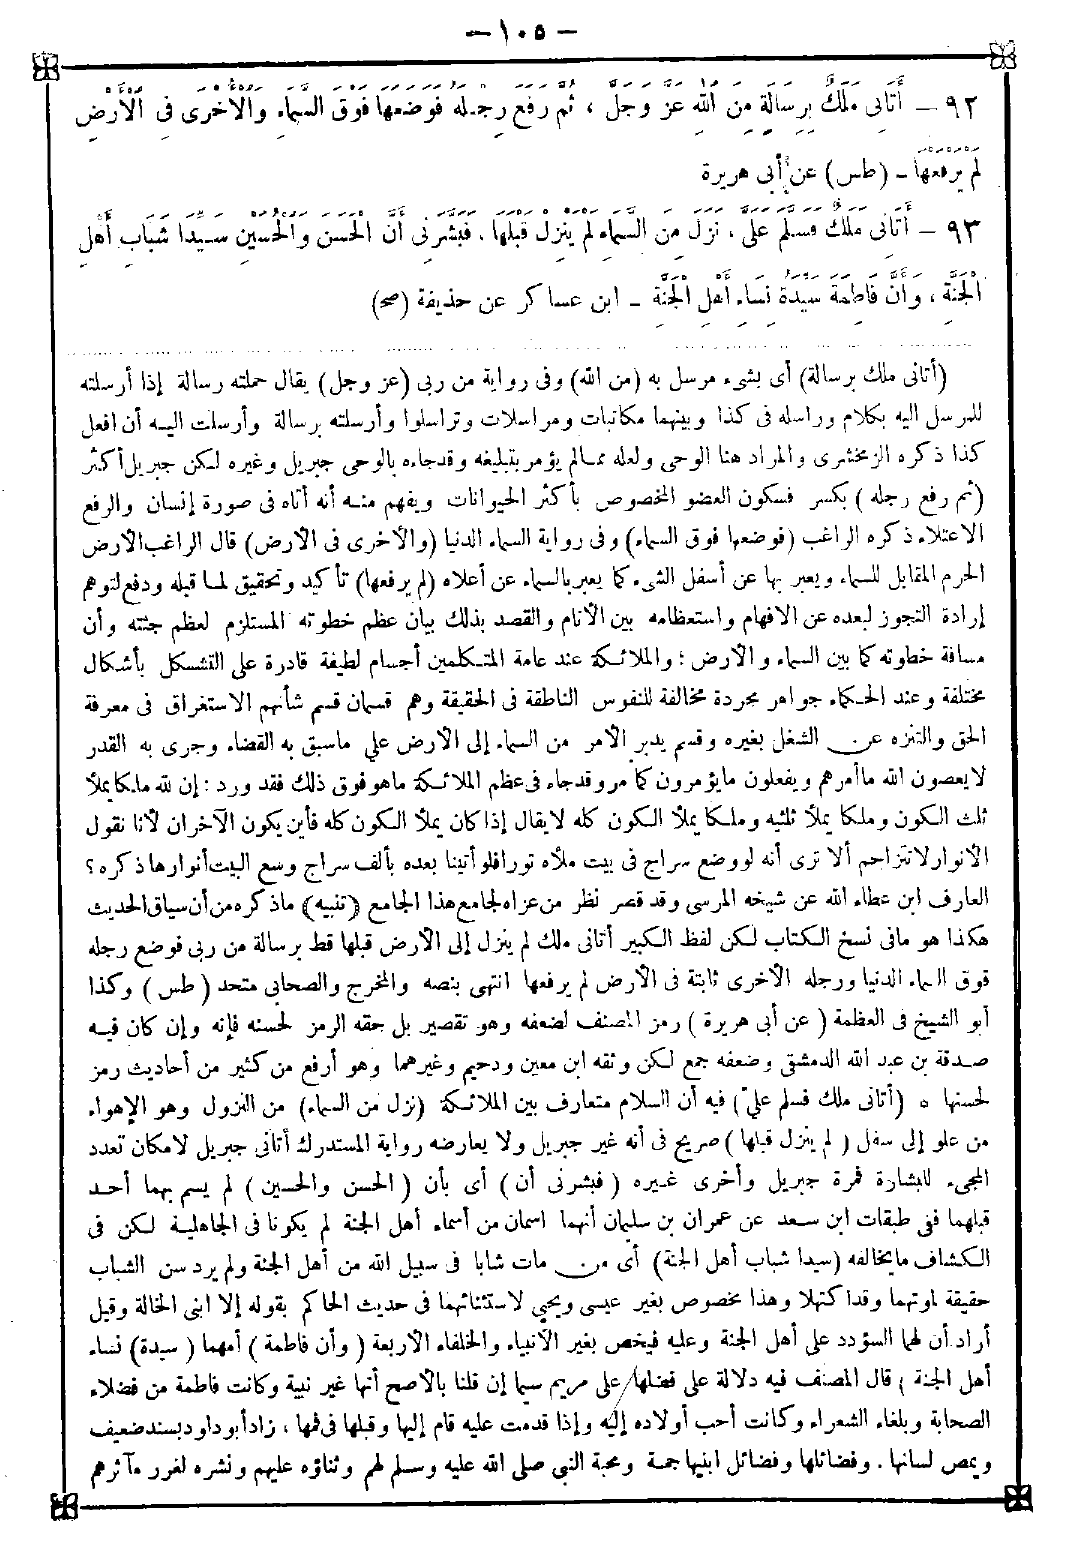 - ١٠٥ -
٩٢ – أَتَانِى مَلَكٌ بِرِسَالَةٍ مِنَ اللهِ عَزَّ وَجَلَّ ، ثُمَّ رَفَعَ رِجْلَهُ فَوَضَعَهَا فَوْقَ السَّمَاءِ وَالْأُخْرَى فِى الْأَرْضِ
لَمْ يَرْفَعْهَا – (طس) عن أبى هريرة
٩٣ – أَتَانِى مَلَكٌ فَسَلَّمَ عَلَىَّ ، نَزَلَ مِنَ السَّمَاءِ لَمْ يَنْزِلْ قَبْلَهَا ، فَبَشَّرَنِى أَنَّ الْحَسَنَ وَالْحُسَيْنِ سَيِّدَا شَبَابِ أَهْلِ
الْجَنَّةِ ، وَأَنَّ فَاطِمَةَ سَيِّدَةُ نِسَاءِ أَهْلِ الْجَنَّةِ – ابن عساكر عن حذيفة (صح)
(أتانى ملك برسالة) أى بشىء مرسل به (من الله) وفى رواية من ربى (عز وجل) يقال حملته رسالة إذا أرسلته
للمرسل اليه بكلام وراسله فى كذا وبينهما مكاتبات ومراسلات وتراسلوا وأرسلته برسالة وأرسلت اليه أن افعل
كذا ذكره الزمخشرى والمراد هنا الوحى ولعله ممالم يؤمر بتبليغه وقدجاءه بالوحى جبريل وغيره لكن جبريل أكثر
(ثم رفع رجله) بكسر فسكون العضو المخصوص بأكثر الحيوانات ويفهم منه أنه أتاه فى صورة إنسان والرفع
الاعتلاء ذكره الراغب (فوضعها فوق السماء) وفى رواية السماء الدنيا (والأخرى فى الأرض) قال الراغب الأرض
الجرم المقابل للسماء ويعبر بها عن أسفل الشىء كما يعبر بالسماء عن أعلاه (لم يرفعها) تأكيد وتحقيق لما قبله ودفع لتوهم
إرادة التجوز لبعده عن الافهام واستعظامه بين الأنام والقصد بذلك بيان عظم خطوته المستلزم لعظم جثته وأن
مسافة خطوته كما بين السماء والأرض ؛ والملائكة عند عامة المتكلمين أجسام لطيفة قادرة على التشكل بأشكال
مختلفة وعند الحكماء جواهر مجردة مخالفة للنفوس الناطقة فى الحقيقة وهم قسمان قسم شأنهم الاستغراق فى معرفة
الحق والتنزه عن الشغل بغيره وقسم يدبر الأمر من السماء إلى الأرض على ماسبق به القضاء وجرى به القدر
لايعصون الله ماأمرهم ويفعلون مايؤمرون كما مر وقدجاء فى عظم الملائكة ماهو فوق ذلك فقد ورد : إن لله ملكا يملأ
ثلث الكون وملكا يملأ ثلثيه وملكا يملأ الكون كله لايقال إذا كان يملأ الكون كله فأين يكون الآخران لأنا نقول
الأنوار لاتتزاحم ألا ترى أنه لو وضع سراج فى بيت ملأه نورا فلو أتينا بعده بألف سراج وسع البيت أنوارها ذكره ؟
العارف ابن عطاء الله عن شيخه المرسى وقد قصر نظر من عزاه لجامع هذا الجامع (تنبيه) ماذكره من أن سياق الحديث
هكذا هو مافى نسخ الكتاب لكن لفظ الكبير أتانى ملك لم ينزل إلى الأرض قبلها قط برسالة من ربى فوضع رجله
فوق السماء الدنيا ورجله الأخرى ثابتة فى الأرض لم يرفعها انتهى بنصه والمخرج والصحابى متحد (طس) وكذا
أبو الشيخ فى العظمة (عن أبى هريرة) رمز المصنف لضعفه وهو تقصير بل حقه الرمز لحسنه فإنه وإن كان فيه
صدقة بن عبد الله الدمشقى وضعفه جمع لكن وثقه ابن معين ودحيم وغيرهما وهو أرفع من كثير من أحاديث رمز
لحسنها ه (أتانى ملك فسلم علىّ) فيه أن السلام متعارف بين الملائكة (نزل من السماء) من النزول وهو الإهواء
من علو إلى سفل (لم ينزل قبلها) صريح فى أنه غير جبريل ولا يعارضه رواية المستدرك أتانى جبريل لامكان تعدد
المجىء للبشارة فمرة جبريل وأخرى غيره (فبشرنى أن) أى بأن (الحسن والحسين) لم يسم بهما أحد
قبلهما ففى طبقات ابن سعد عن عمران بن سليمان أنهما اسمان من أسماء أهل الجنة لم يكونا فى الجاهلية لكن فى
الكشاف مايخالفه (سيدا شباب أهل الجنة) أى من مات شابا فى سبيل الله من أهل الجنة ولم يرد سن الشباب
حقيقة لموتهما وقد اكتهلا وهذا مخصوص بغير عيسى ويحيى لاستثنائهما فى حديث الحاكم بقوله إلا ابنى الخالة وقيل
أراد أن لهما السؤدد على أهل الجنة وعليه فيخص بغير الأنبياء والخلفاء الأربعة (وأن فاطمة) أمهما (سيدة) نساء
أهل الجنة) قال المصنف فيه دلالة على فضلها على مريم سيما إن قلنا بالأصح أنها غير نبية وكانت فاطمة من فضلاء
الصحابة وبلغاء الشعراء وكانت أحب أولاده إليه وإذا قدمت عليه قام إليها وقبلها فى فمها ، زاد أبو داود بسند ضعيف
ويمص لسانها . وفضائلها وفضائل ابنيها جمة ومحبة النبي صلى الله عليه وسلم لهم وثناؤه عليهم ونشره لغرر مآثرهم